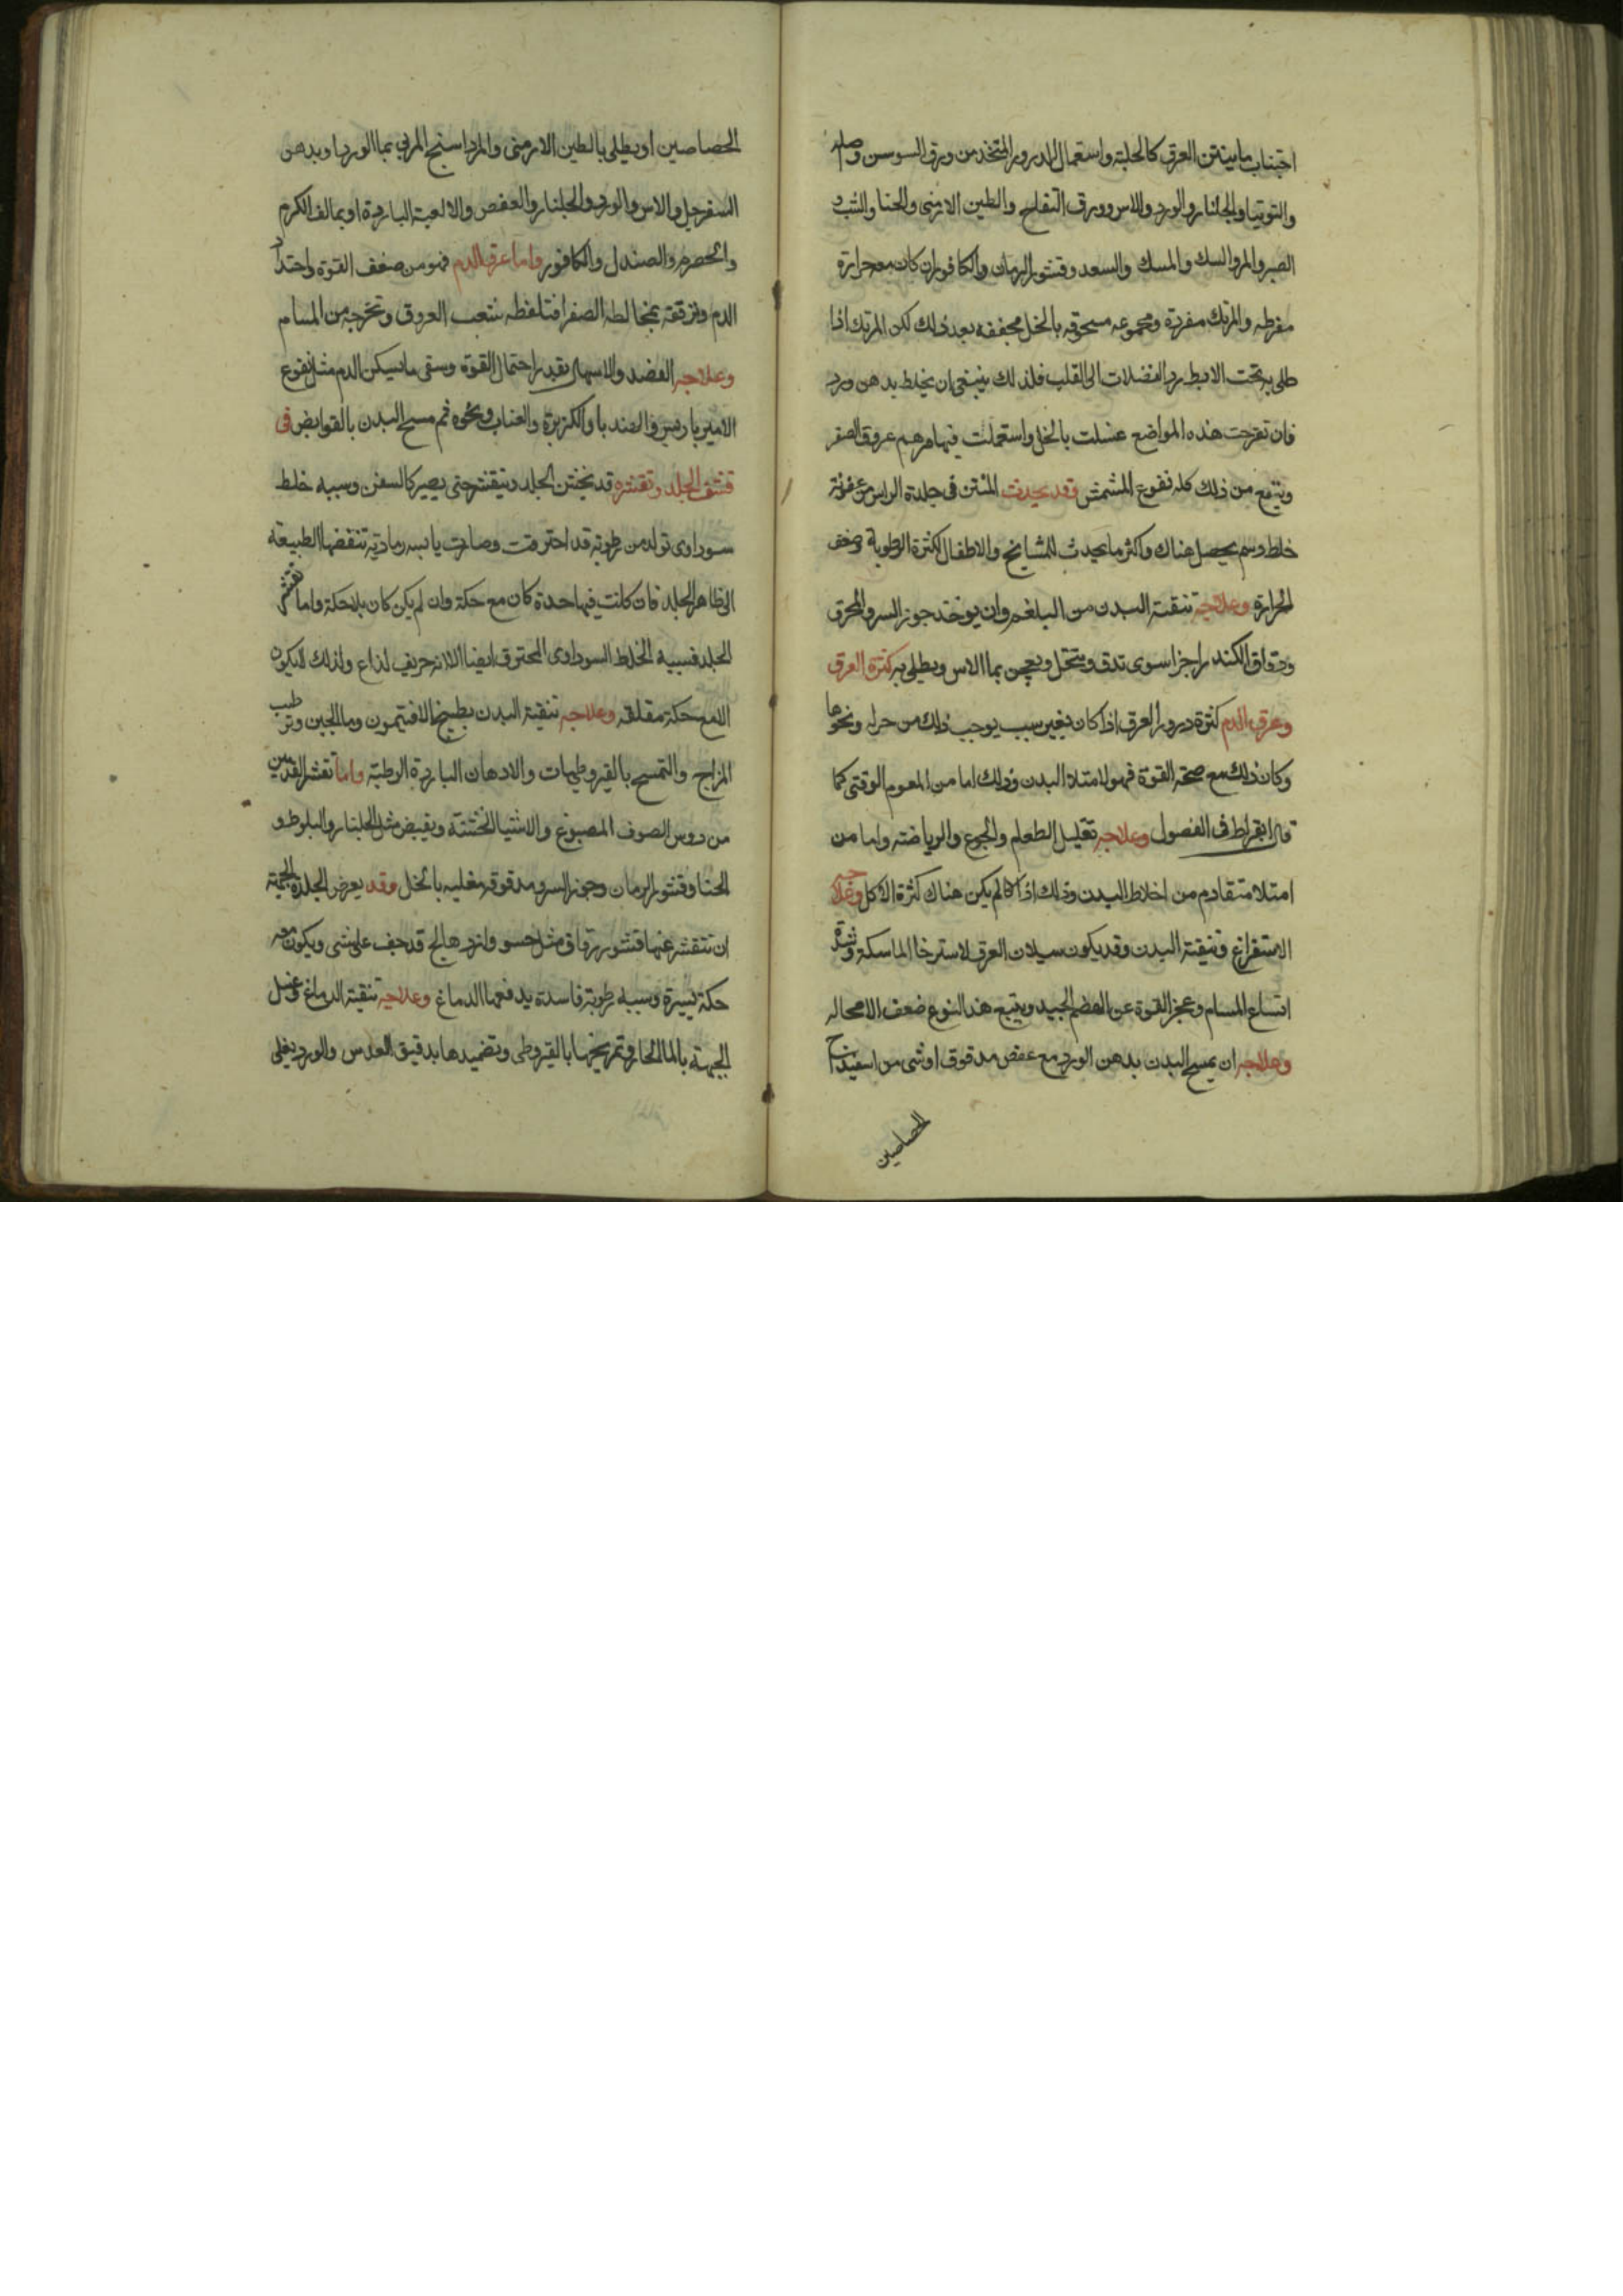 اجتناب ما ينتن العرق كالحلبة واستعمال الذرور المتخذ من ورق السوسن
والتوتيا والجلنار والورد والاس وورق التفاح والطين الارمني والحنا والشب و
الصبر والمر والسك والمسك والسعد وقشور الرمان والكافور ان كان معه حرارة
مفرطه والمرتك مفردة ومجموعه مسحوقه بالخل مجففه بعد ذلك لكن المرتك اذا
طلى به تحت الابط رد الفضلات الى القلب فلذلك ينبغي ان يخلط بدهن ورد
فان تقرحت هذه المواضع غسلت بالخل واستعملت فيها مرهم عروق الصفر
وينفع من ذلك كله نقوع المشمش وقد يحدث المنتن في جلدة الراس من عفونة
خلط دسم يحصل هناك واكثر ما يحدث للمشايخ والاطفال لكثرة الرطوبة وضعف
الحرارة وعلاجه تنقية البدن من البلغم وان يوخذ جوز السرو المحرق
ودقاق الكندر اجزا سوى تدق وينخل ويعجن بما الاس ويطلى به كثرة العرق
وعرق الدم كثرة درور العرق اذا كان بغير سبب يوجب ذلك من حرار ونحوها
وكان ذلك مع صحة القوة فهو لامتلا البدن وذلك اما من المطعوم الوقتي كما
قال ابقراط في الفصول وعلاجه تقليل الطعام والجوع والرياضة واما من
امتلا متقادم من اخلاط البدن وذلك اذا كا لم يكن هناك كثرة الاكل وعلاجه
الاستفراغ وتنقية البدن وقد يكون سيلان العرق لاسترخا الماسكة وشدة
اتساع المسام وعجز القوة عن الهضم الجيد ويتبع هذا النوع ضعف لا محاله
وعلاجه ان يمسح البدن بدهن الورد مع عفص مدقوق او شى من اسفيداج
الحصاصين
الحصاصين او يطلى بالطين الارمني والمرداسنج المربى بما الورد او بدهن
السفرجل والاس والورد والجلنار والعفص والالعبة الباردة او بما الف الكرم
والحصرم والصندل والكافور واما عرق الدم فهو من ضعف القوة واحتداد
الدم ورققه بمخالطه الصفرا فتلفظه شعب العروق وتخرجه من المسام
وعلاجه الفصد والاسهال بقدر احتمال القوة وسقى ما يسكن الدم مثل نقوع
الامير باريس والهندبا والكزبرة والعناب ونحوه ثم مسح البدن بالقوابض في
قشف الجلد وتقشره قد يخشن الجلد ويتقشر حتى يصير كالسفن وسببه خلط
سوداوى تولد من رطوبة قد احترقت وصارت يابسه رمادية تنفضها الطبيعة
الى ظاهر الجلد فان كانت فيها حدة كان مع حكة وان لم يكن كان بلا حكة واما تقشر
الجلد فسببه الخلط السوداوى المحترق ايضا الا انه حريف لذاع ولذلك لا يكون
الا مع حكة مقلقه وعلاجه تنقية البدن بطبيخ الافتيمون وما الجبن وترطيب
المزاج والتمسح بالقيروطيات والادهان الباردة الرطبة واما تقشر القدمين
من دوس الصوف المصبوغ والاشيا الخشنة ويقبض مثل الجلنار والبلوط و
الحنا وقشور الرمان وجوز السرو مدقوقه مغليه بالخل وقد يعرض لجلدة الجبهة
ان تتقشر عنها قشور رقاق مثل حسو قد جف على شى ويكون معه
حكة يسيرة وسببه رطوبة فاسدة يدفعها الدماغ وعلاجه تنقية الدماغ وغسل
الجبهة بالما الحار وتمريخها بالقيروطى وتضميدها بدقيق العدس والورد يغلى